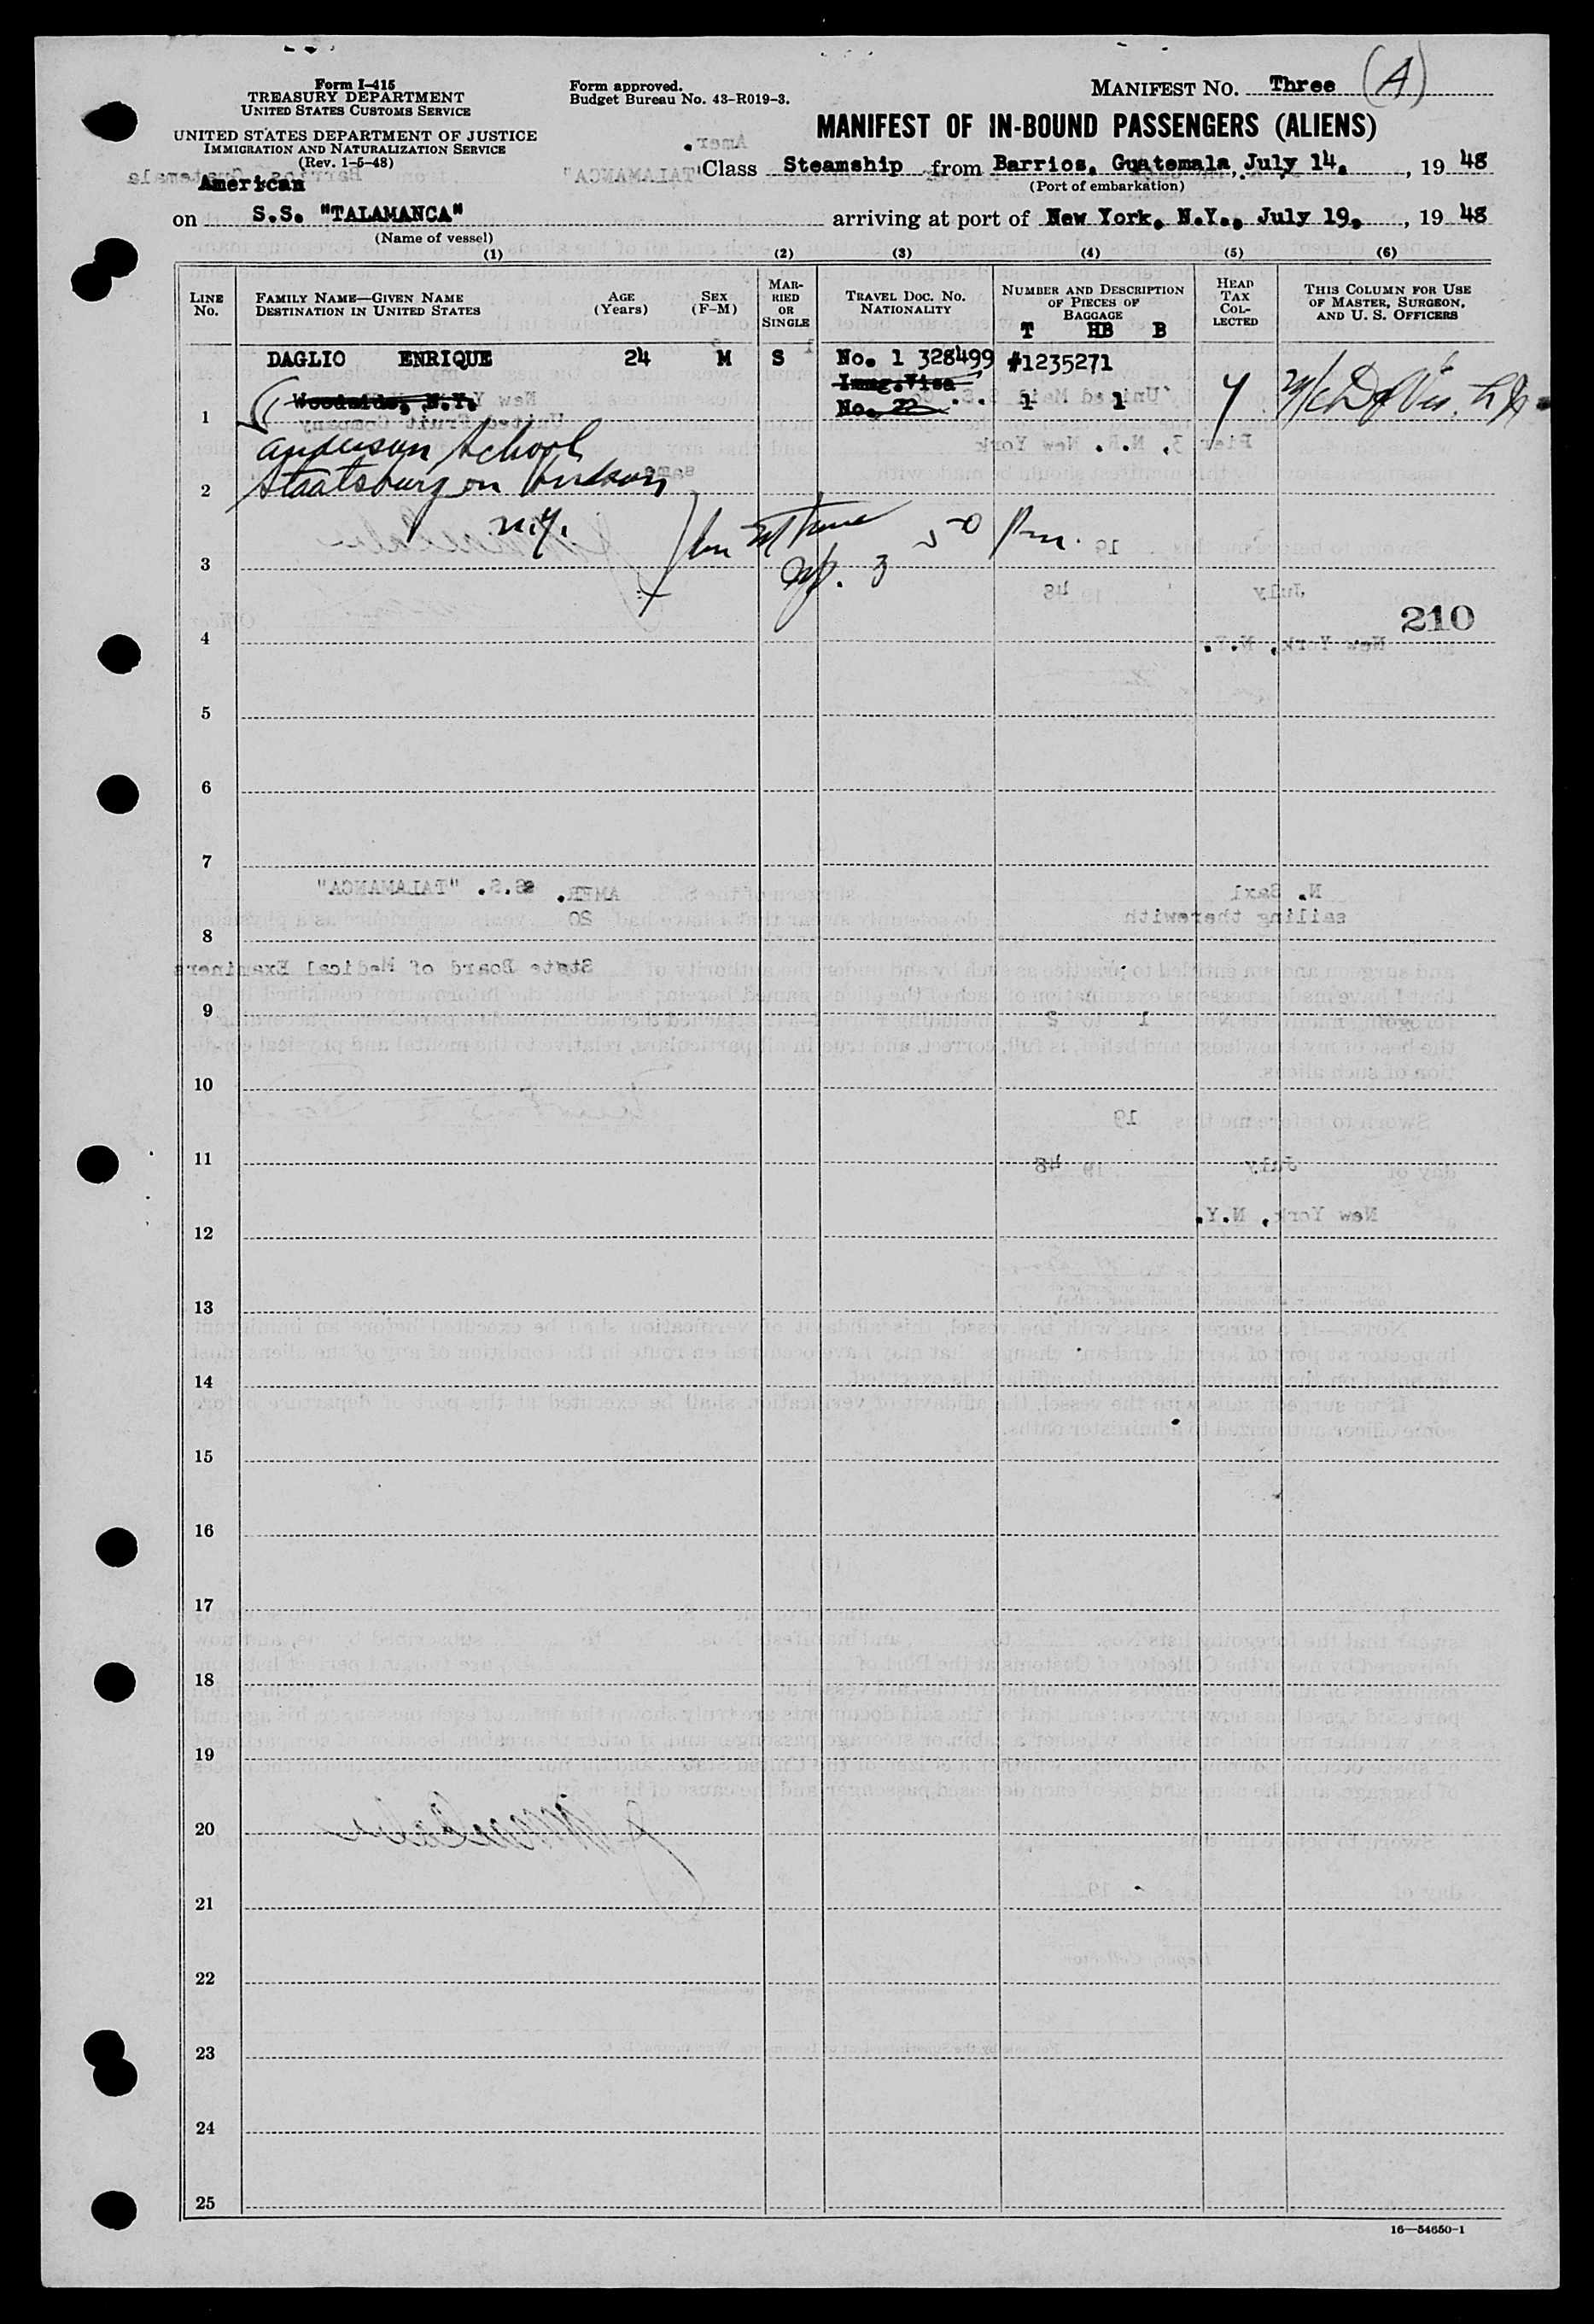 Form I-415
TREASURY DEPARTMENT
UNITED STATES CUSTOMS SERVICE
UNITED STATES DEPARTMENT OF JUSTICE
IMMIGRATION AND NATURALIZATION SERVICE
(Rev. 1-5-48)
Form approved.
Budget Bureau No. 43-R019-3.
MANIFEST NO. Three (A)
MANIFEST OF IN-BOUND PASSENGERS (ALIENS)
Class Steamship from Barrios, Guatemala, July 14, , 19 48
(Port of embarkation)
American
on S.S. "TALAMANCA" arriving at port of New York, N.Y., July 19, , 19 48
(Name of vessel)
(1) (2) (3) (4) (5) (6)
LINE NO.
FAMILY NAME—GIVEN NAME
DESTINATION IN UNITED STATES
AGE (Years)
SEX (F-M)
MARRIED OR SINGLE
TRAVEL DOC. NO. NATIONALITY
NUMBER AND DESCRIPTION OF PIECES OF BAGGAGE
T HB B
HEAD TAX COLLECTED
THIS COLUMN FOR USE OF MASTER, SURGEON, AND U. S. OFFICERS
DAGLIO ENRIQUE 24 M S No. 1 328499 #1235271
Immg.Visa
1 Woodside, N.Y. No. 22 1 1
Anderson School
2 Staatsburg on Hudson
N.Y.
3
4 210
5
6
7
8
9
10
11
12
13
14
15
16
17
18
19
20
21
22
23
24
25
16—54650-1